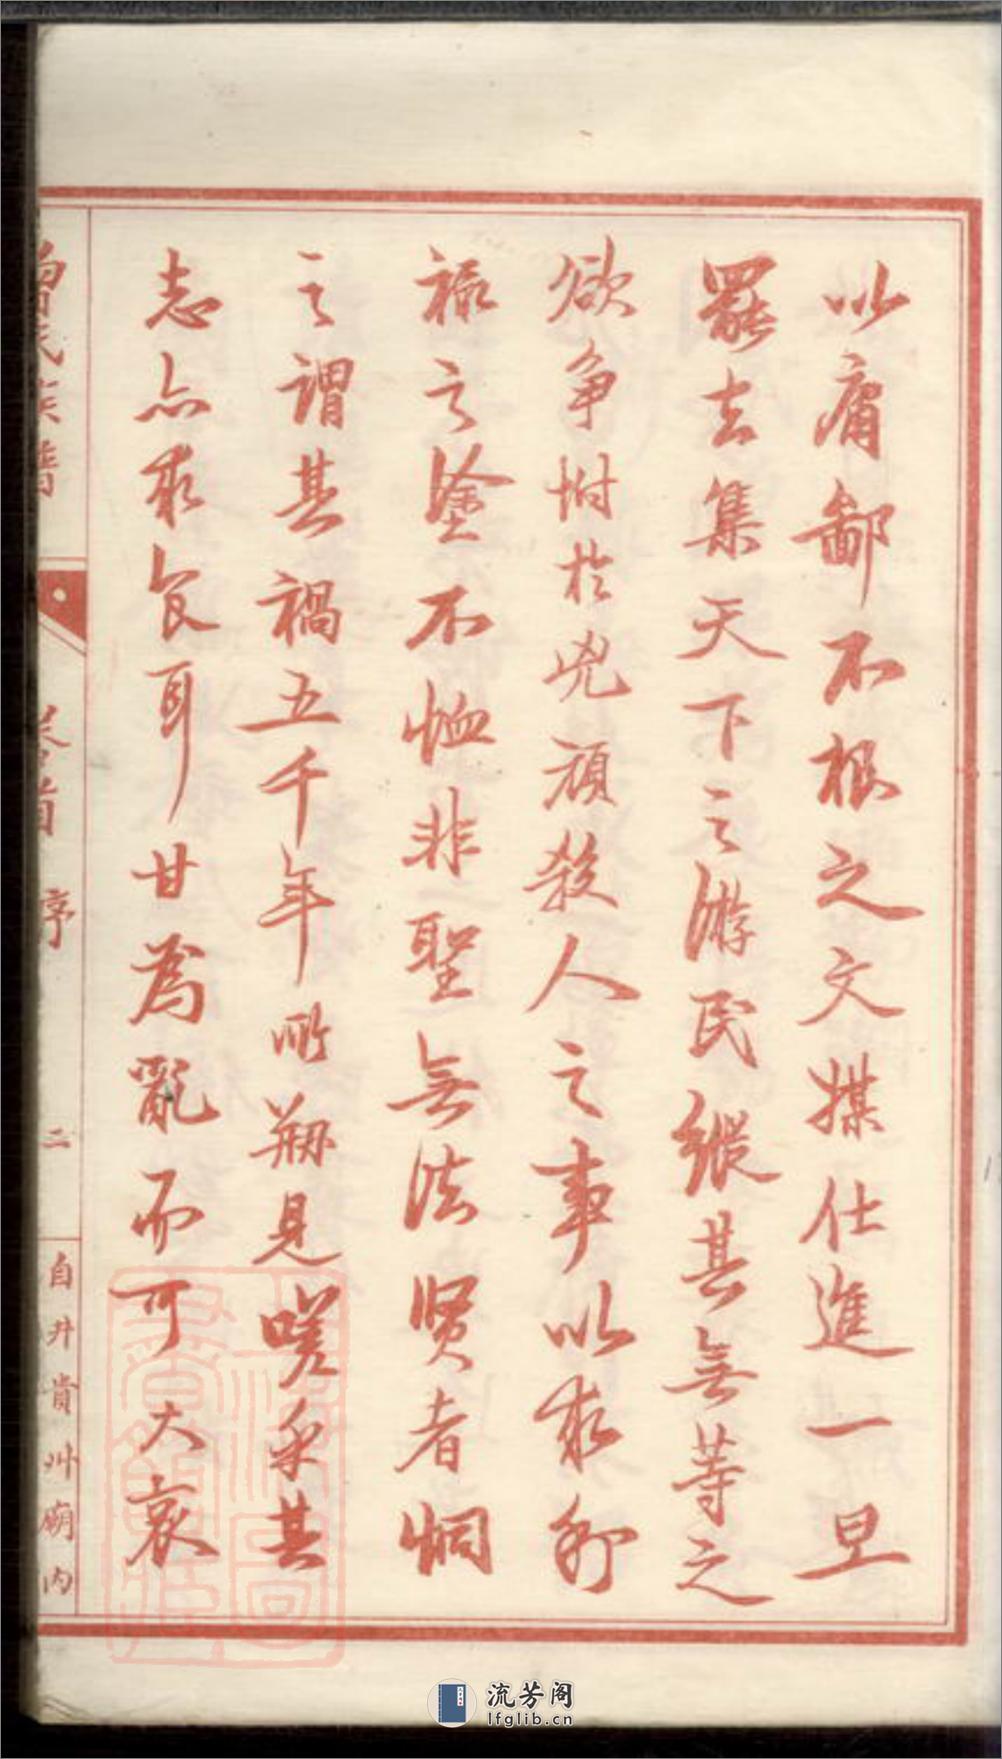 以庸鄙不根之文媒仕進一旦
罷去集天下之游民縱其無等之
欲爭附於兇頑殺人之事以求利
祿之塗不恤非聖無法賢者惘
之謂其禍五千年所剏見嗟乎其
志亦求食耳甘為亂而可大哀
曾氏族譜
卷首
序
二
自井貴州廟內
流芳阁
lfglib.cn